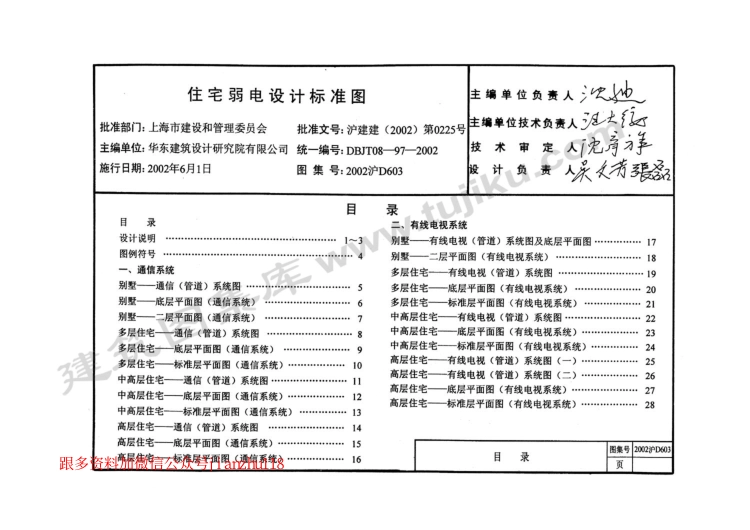 住宅弱电设计标准图
批准部门: 上海市建设和管理委员会 批准文号: 沪建建（2002）第0225号
主编单位: 华东建筑设计研究院有限公司 统一编号: DBJT08—97—2002
施行日期: 2002年6月1日 图 集 号: 2002沪D603
主编单位负责人
主编单位技术负责人
技 术 审 定 人
设 计 负 责 人
目 录
目 录
设计说明 ………… 1～3
图例符号 ………… 4
一、通信系统
别墅——通信（管道）系统图 ………… 5
别墅——底层平面图（通信系统） ………… 6
别墅——二层平面图（通信系统） ………… 7
多层住宅——通信（管道）系统图 ………… 8
多层住宅——底层平面图（通信系统） ………… 9
多层住宅——标准层平面图（通信系统） ………… 10
中高层住宅——通信（管道）系统图 ………… 11
中高层住宅——底层平面图（通信系统） ………… 12
中高层住宅——标准层平面图（通信系统） ………… 13
高层住宅——通信（管道）系统图 ………… 14
高层住宅——底层平面图（通信系统） ………… 15
高层住宅——标准层平面图（通信系统） ………… 16
二、有线电视系统
别墅——有线电视（管道）系统图及底层平面图 ………… 17
别墅——二层平面图（有线电视系统） ………… 18
多层住宅——有线电视（管道）系统图 ………… 19
多层住宅——底层平面图（有线电视系统） ………… 20
多层住宅——标准层平面图（有线电视系统） ………… 21
中高层住宅——有线电视（管道）系统图 ………… 22
中高层住宅——底层平面图（有线电视系统） ………… 23
中高层住宅——标准层平面图（有线电视系统） ………… 24
高层住宅——有线电视（管道）系统图（一） ………… 25
高层住宅——有线电视（管道）系统图（二） ………… 26
高层住宅——底层平面图（有线电视系统） ………… 27
高层住宅——标准层平面图（有线电视系统） ………… 28
目 录
图集号 2002沪D603
页
建筑图集库 www.tujiku.com
跟多资料加微信公众号